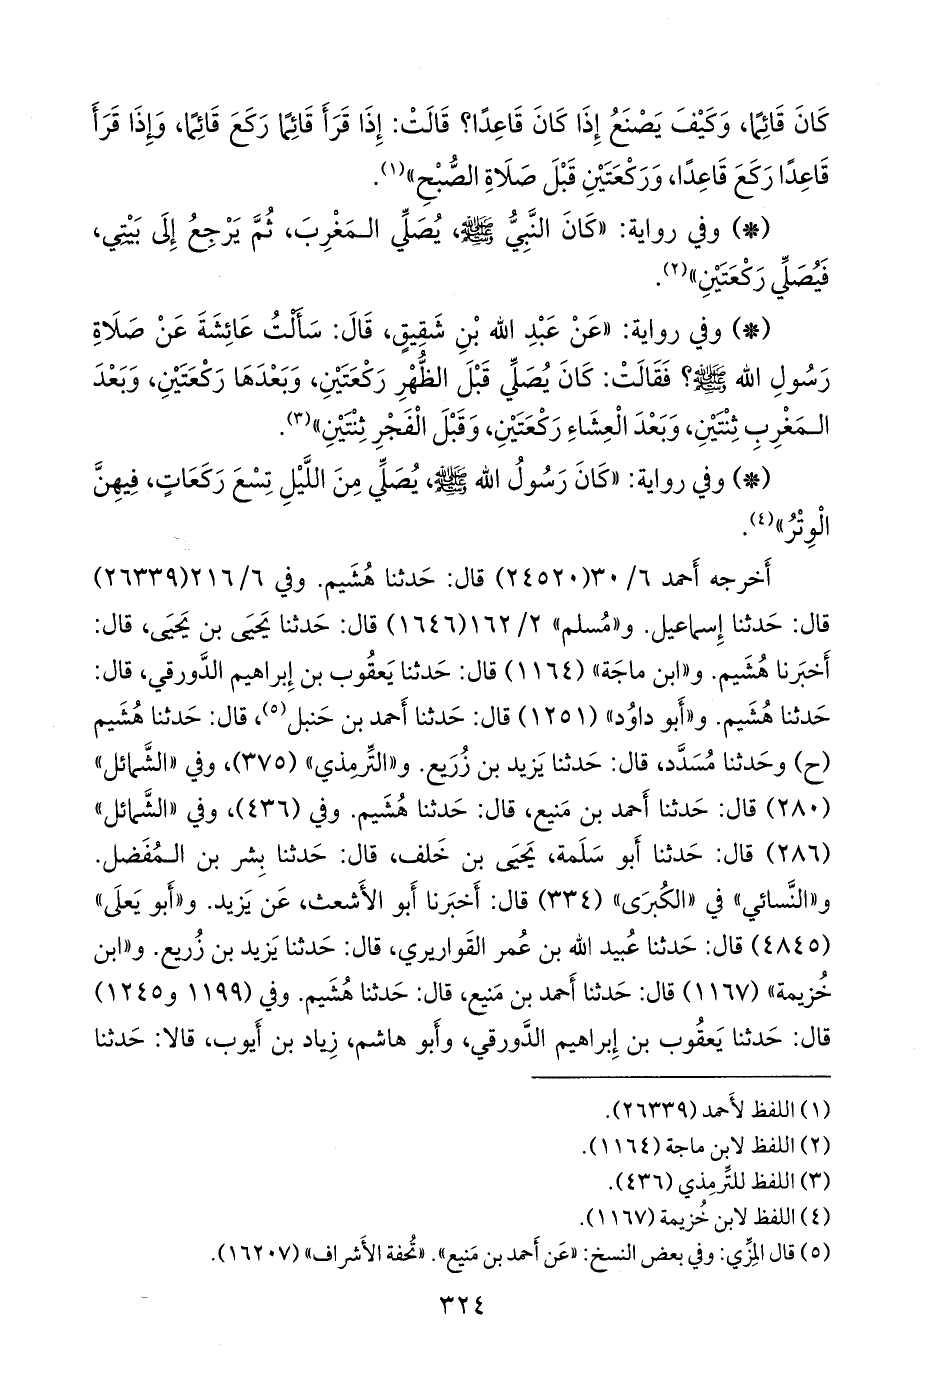 كَانَ قَائِمًا، وَكَيْفَ يَصْنَعُ إِذَا كَانَ قَاعِدًا؟ قَالَتْ: إِذَا قَرَأَ قَائِمًا رَكَعَ قَائِمًا، وَإِذَا قَرَأَ
قَاعِدًا رَكَعَ قَاعِدًا، وَرَكْعَتَيْنِ قَبْلَ صَلَاةِ الصُّبْحِ»(١).
(*) وفي رواية: «كَانَ النَّبِيُّ ﷺ، يُصَلِّي الـمَغْرِبَ، ثُمَّ يَرْجِعُ إِلَى بَيْتِي،
فَيُصَلِّي رَكْعَتَيْنِ»(٢).
(*) وفي رواية: «عَنْ عَبْدِ الله بْنِ شَقِيقٍ، قَالَ: سَأَلْتُ عَائِشَةَ عَنْ صَلَاةِ
رَسُولِ الله ﷺ؟ فَقَالَتْ: كَانَ يُصَلِّي قَبْلَ الظُّهْرِ رَكْعَتَيْنِ، وَبَعْدَهَا رَكْعَتَيْنِ، وَبَعْدَ
الـمَغْرِبِ ثِنْتَيْنِ، وَبَعْدَ الْعِشَاءِ رَكْعَتَيْنِ، وَقَبْلَ الْفَجْرِ ثِنْتَيْنِ»(٣).
(*) وفي رواية: «كَانَ رَسُولُ الله ﷺ، يُصَلِّي مِنَ اللَّيْلِ تِسْعَ رَكَعَاتٍ، فِيهِنَّ
الْوِتْرُ»(٤).
أَخرجه أَحمد ٦/ ٣٠(٢٤٥٢٠) قال: حَدثنا هُشَيم. وفي ٦/ ٢١٦(٢٦٣٣٩)
قال: حَدثنا إِسماعيل. و«مُسلم» ٢/ ١٦٢(١٦٤٦) قال: حَدثنا يَحيَى بن يَحيَى، قال:
أَخبَرنا هُشَيم. و«ابن ماجَة» (١١٦٤) قال: حَدثنا يَعقُوب بن إِبراهيم الدَّورقي، قال:
حَدثنا هُشَيم. و«أَبو داوُد» (١٢٥١) قال: حَدثنا أَحمد بن حَنبل(٥)، قال: حَدثنا هُشَيم
(ح) وحَدثنا مُسَدَّد، قال: حَدثنا يَزيد بن زُرَيع. و«التِّرمِذي» (٣٧٥)، وفي «الشَّمائل»
(٢٨٠) قال: حَدثنا أَحمد بن مَنيع، قال: حَدثنا هُشَيم. وفي (٤٣٦)، وفي «الشَّمائل»
(٢٨٦) قال: حَدثنا أَبو سَلَمة، يَحيَى بن خَلف، قال: حَدثنا بِشر بن الـمُفَضل.
و«النَّسائي» في «الكُبرَى» (٣٣٤) قال: أَخبَرنا أَبو الأَشعث، عَن يَزيد. و«أَبو يَعلَى»
(٤٨٤٥) قال: حَدثنا عُبيد الله بن عُمر القَواريري، قال: حَدثنا يَزيد بن زُريع. و«ابن
خُزيمة» (١١٦٧) قال: حَدثنا أَحمد بن مَنيع، قال: حَدثنا هُشَيم. وفي (١١٩٩ و١٢٤٥)
قال: حَدثنا يَعقُوب بن إِبراهيم الدَّورقي، وأَبو هاشم، زِياد بن أَيوب، قالا: حَدثنا
(١) اللفظ لأَحمد (٢٦٣٣٩).
(٢) اللفظ لابن ماجة (١١٦٤).
(٣) اللفظ للتِّرمِذي (٤٣٦).
(٤) اللفظ لابن خُزيمة (١١٦٧).
(٥) قال المِزِّي: وفي بعض النسخ: «عَن أَحمد بن مَنيع». «تُحفة الأَشراف» (١٦٢٠٧).
٣٢٤